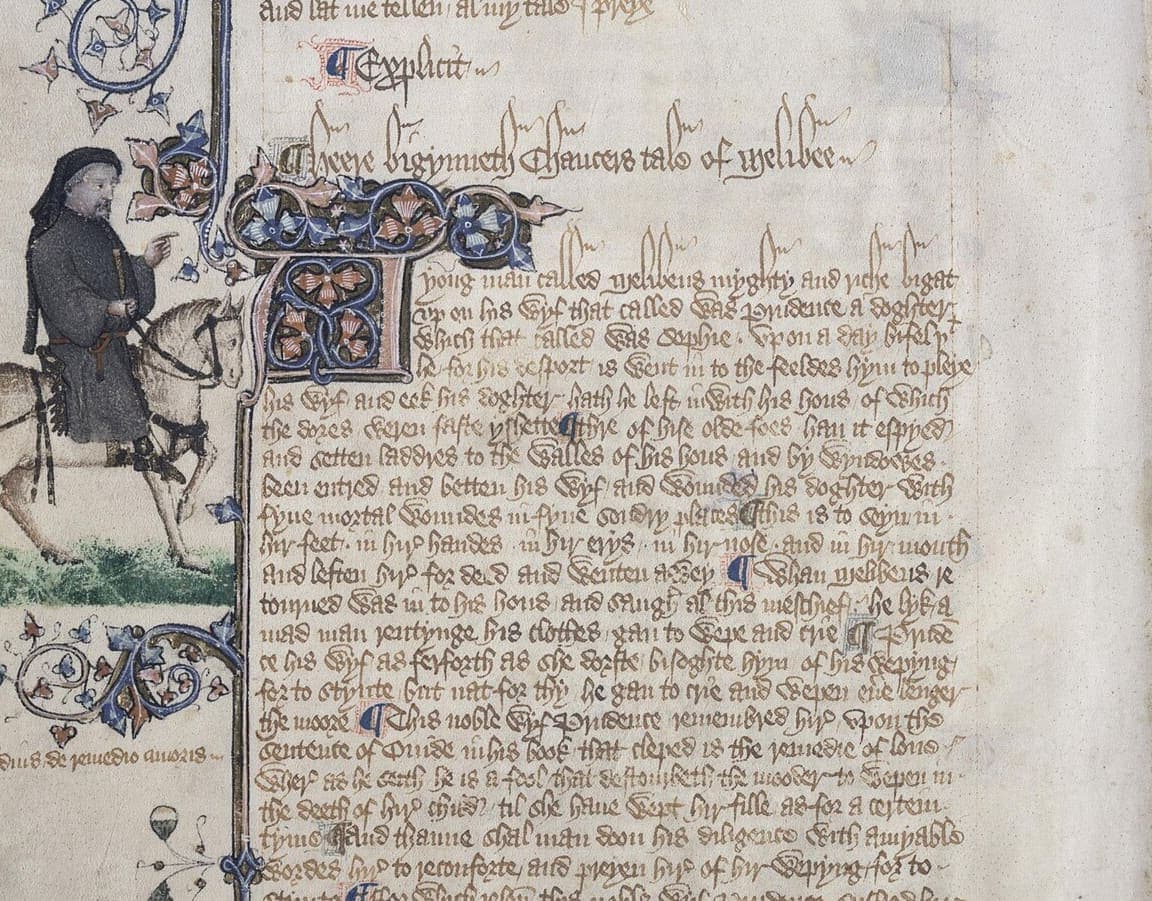 and lat me tellen al my tale I preye
¶ Explicit
¶ Heere bigynneth Chaucers tale of Melibee
A yong man called Melibeus myghty and riche bigat
vp on his wyf that called was Prudence a doghter
which that called was Sophie · vpon a day bifel yt
he for his desport is went in to the feeldes hym to pleye
his wyf and eek his doghter hath he left inwith his hous of which
the dores weren faste yshette ¶ thre of hise olde foes han it espyed
and setten laddres to the walles of his hous and by wyndowes
been entred and betten his wyf and wounded his doghter with
fyue mortal woundes in fyue sondry places ¶ this is to seyn in
hir feet · in hir handes · in hir erys · in hir nose · and in hir mouth
and leften hir for deed and wenten awey ¶ Whan Melibeus re
tourned was in to his hous and saugh al this meschief · he lyk a
mad man rentynge his clothes gan to wepe and crie ¶ Pruden
ce his wyf as ferforth as she dorste bisoghte hym of his wepyng
for to stynte but nat for thy he gan to crie and wepen euere lenger
the moore ¶ This noble wyf Prudence remembred hir vpon the
sentence of Ouide in his book that cleped is the remedie of loue
wher as he seith he is a fool that destourbeth the mooder to wepen in
the deeth of hir child til she haue wept hir fille as for a certein
dius de remedio amoris
tyme ¶ And thanne shal man doon his diligence with amyable
wordes hir to reconforte and preyen hir of hir wepyng for to
stynte ¶ For which reson this noble wyf Prudence suffred hir